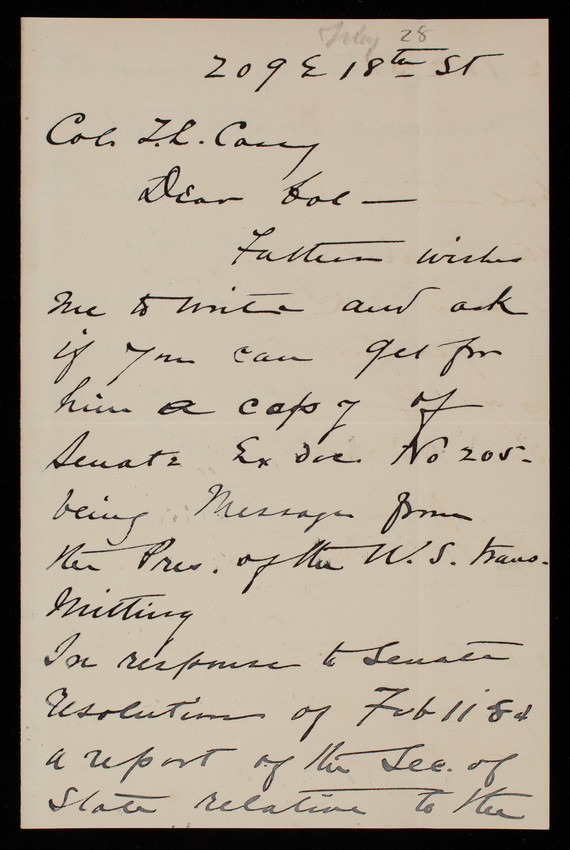 July 28
209 E 18th St
Col. T.L. Casey
Dear Col —
Father wishes
me to write and ask
if you can get for
him a copy of
Senate Ex Doc. No 205-
being Message from
the Pres. of the U.S. trans-
mitting
In response to Senate
Resolution of Feb 11 84
a report of the Sec. of
State relative to the